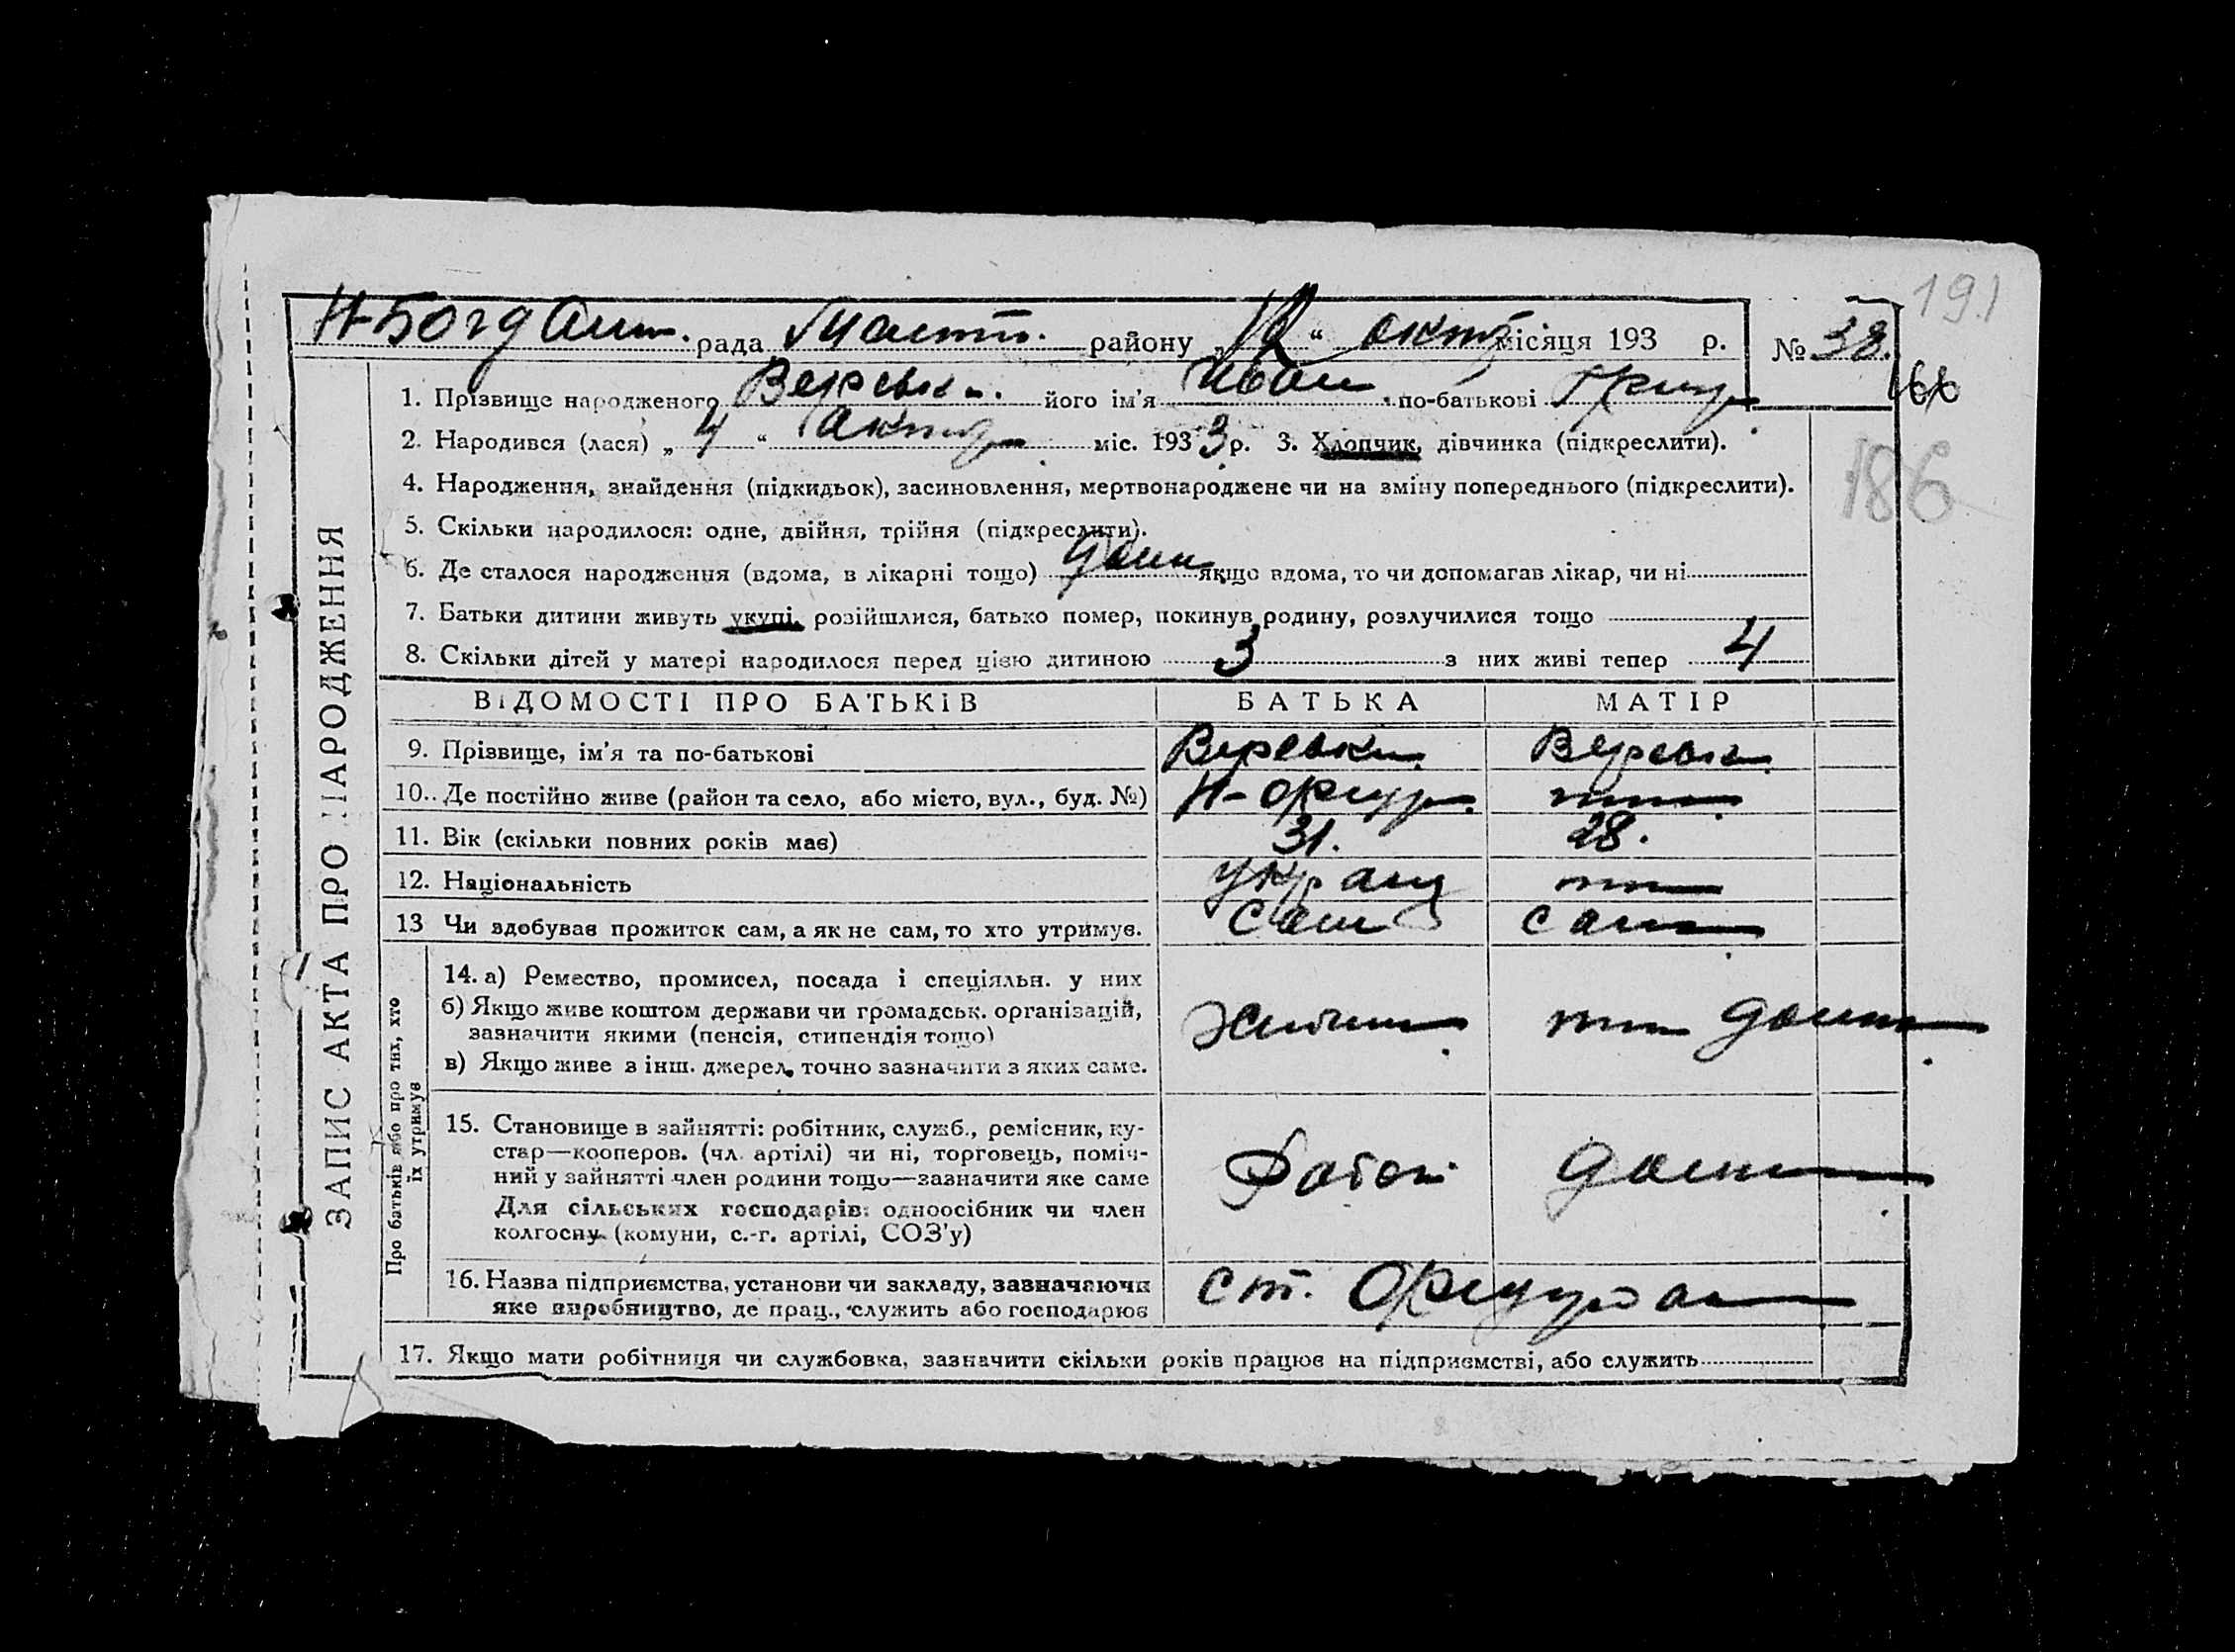 191
Н-Богдан. рада район у „12“ окт місяця 193 р. № 38.
66
1. Прізвище народженого Веревк. його ім'я Иван по-батькові Григ.
2. Народився (лася) „4“ октяб міс. 1933 р. 3. Хлопчик, дівчинка (підкреслити).
186
4. Народження, знайдення (підкидьок), засиновлення, мертвонароджене чи на зміну попереднього (підкреслити).
5. Скільки народилося: одне, двійня, трійня (підкреслити).
6. Де сталося народження (вдома, в лікарні тощо) дома якщо вдома, то чи допомагав лікар, чи ні
7. Батьки дитини живуть укупі, розійшлися, батько помер, покинув родину, розлучилися тощо
8. Скільки дітей у матері народилося перед цією дитиною 3 з них живі тепер 4
ВІДОМОСТІ ПРО БАТЬКІВ БАТЬКА МАТІР
9. Прізвище, ім'я та по-батькові Веревк. Веревк.
10. Де постійно живе (район та село, або місто, вул., буд. №)
11. Вік (скільки повних років має) 31. 28.
12. Національність украц
13 Чи здобував прожиток сам, а як не сам, то хто утримує. сам сама
14. а) Ремество, промисел, посада і спеціяльн. у них
б) Якщо живе коштом держави чи громадськ. організацій,
зазначити якими (пенсія, стипендія тощо)
в) Якщо живе з інш. джерел, точно зазначити з яких саме.
15. Становище в зайнятті: робітник, служб., ремісник, ку-
стар—кооперов. (чл. артілі) чи ні, торговець, поміч-
ний у зайнятті член родини тощо—зазначити яке саме
Для сільських господарів: одноосібник чи член
колгоспу (комуни, с.-г. артілі, СОЗ'у)
16. Назва підприємства, установи чи закладу, зазначаючи
яке виробництво, де прац., служить або господарює
ст.
17. Якщо мати робітниця чи службовка, зазначити скільки років працює на підприємстві, або служить
ЗАПИС АКТА ПРО НАРОДЖЕННЯ
Про батьків або про тих, хто
їх утримує